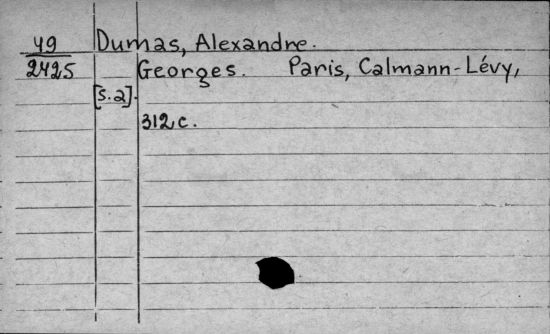 49 Dumas, Alexandre.
2425 Georges. Paris, Calmann-Lévy,
[s.a].
312 c.